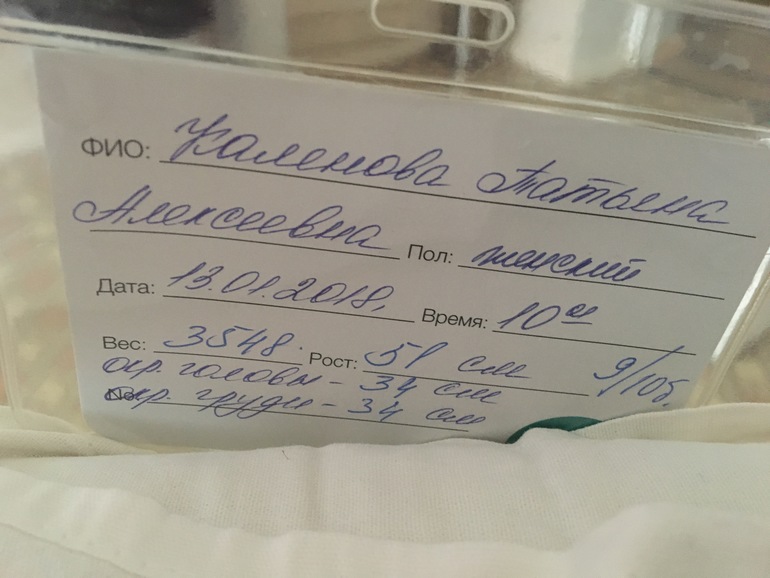 ФИО: Каленова Татьяна
Алексеевна Пол: женский
Дата: 13.01.2018г. Время: 10
Вес: 3548. Рост: 51 см 9/10б.
окр. головы - 34 см
окр. груди - 34 см